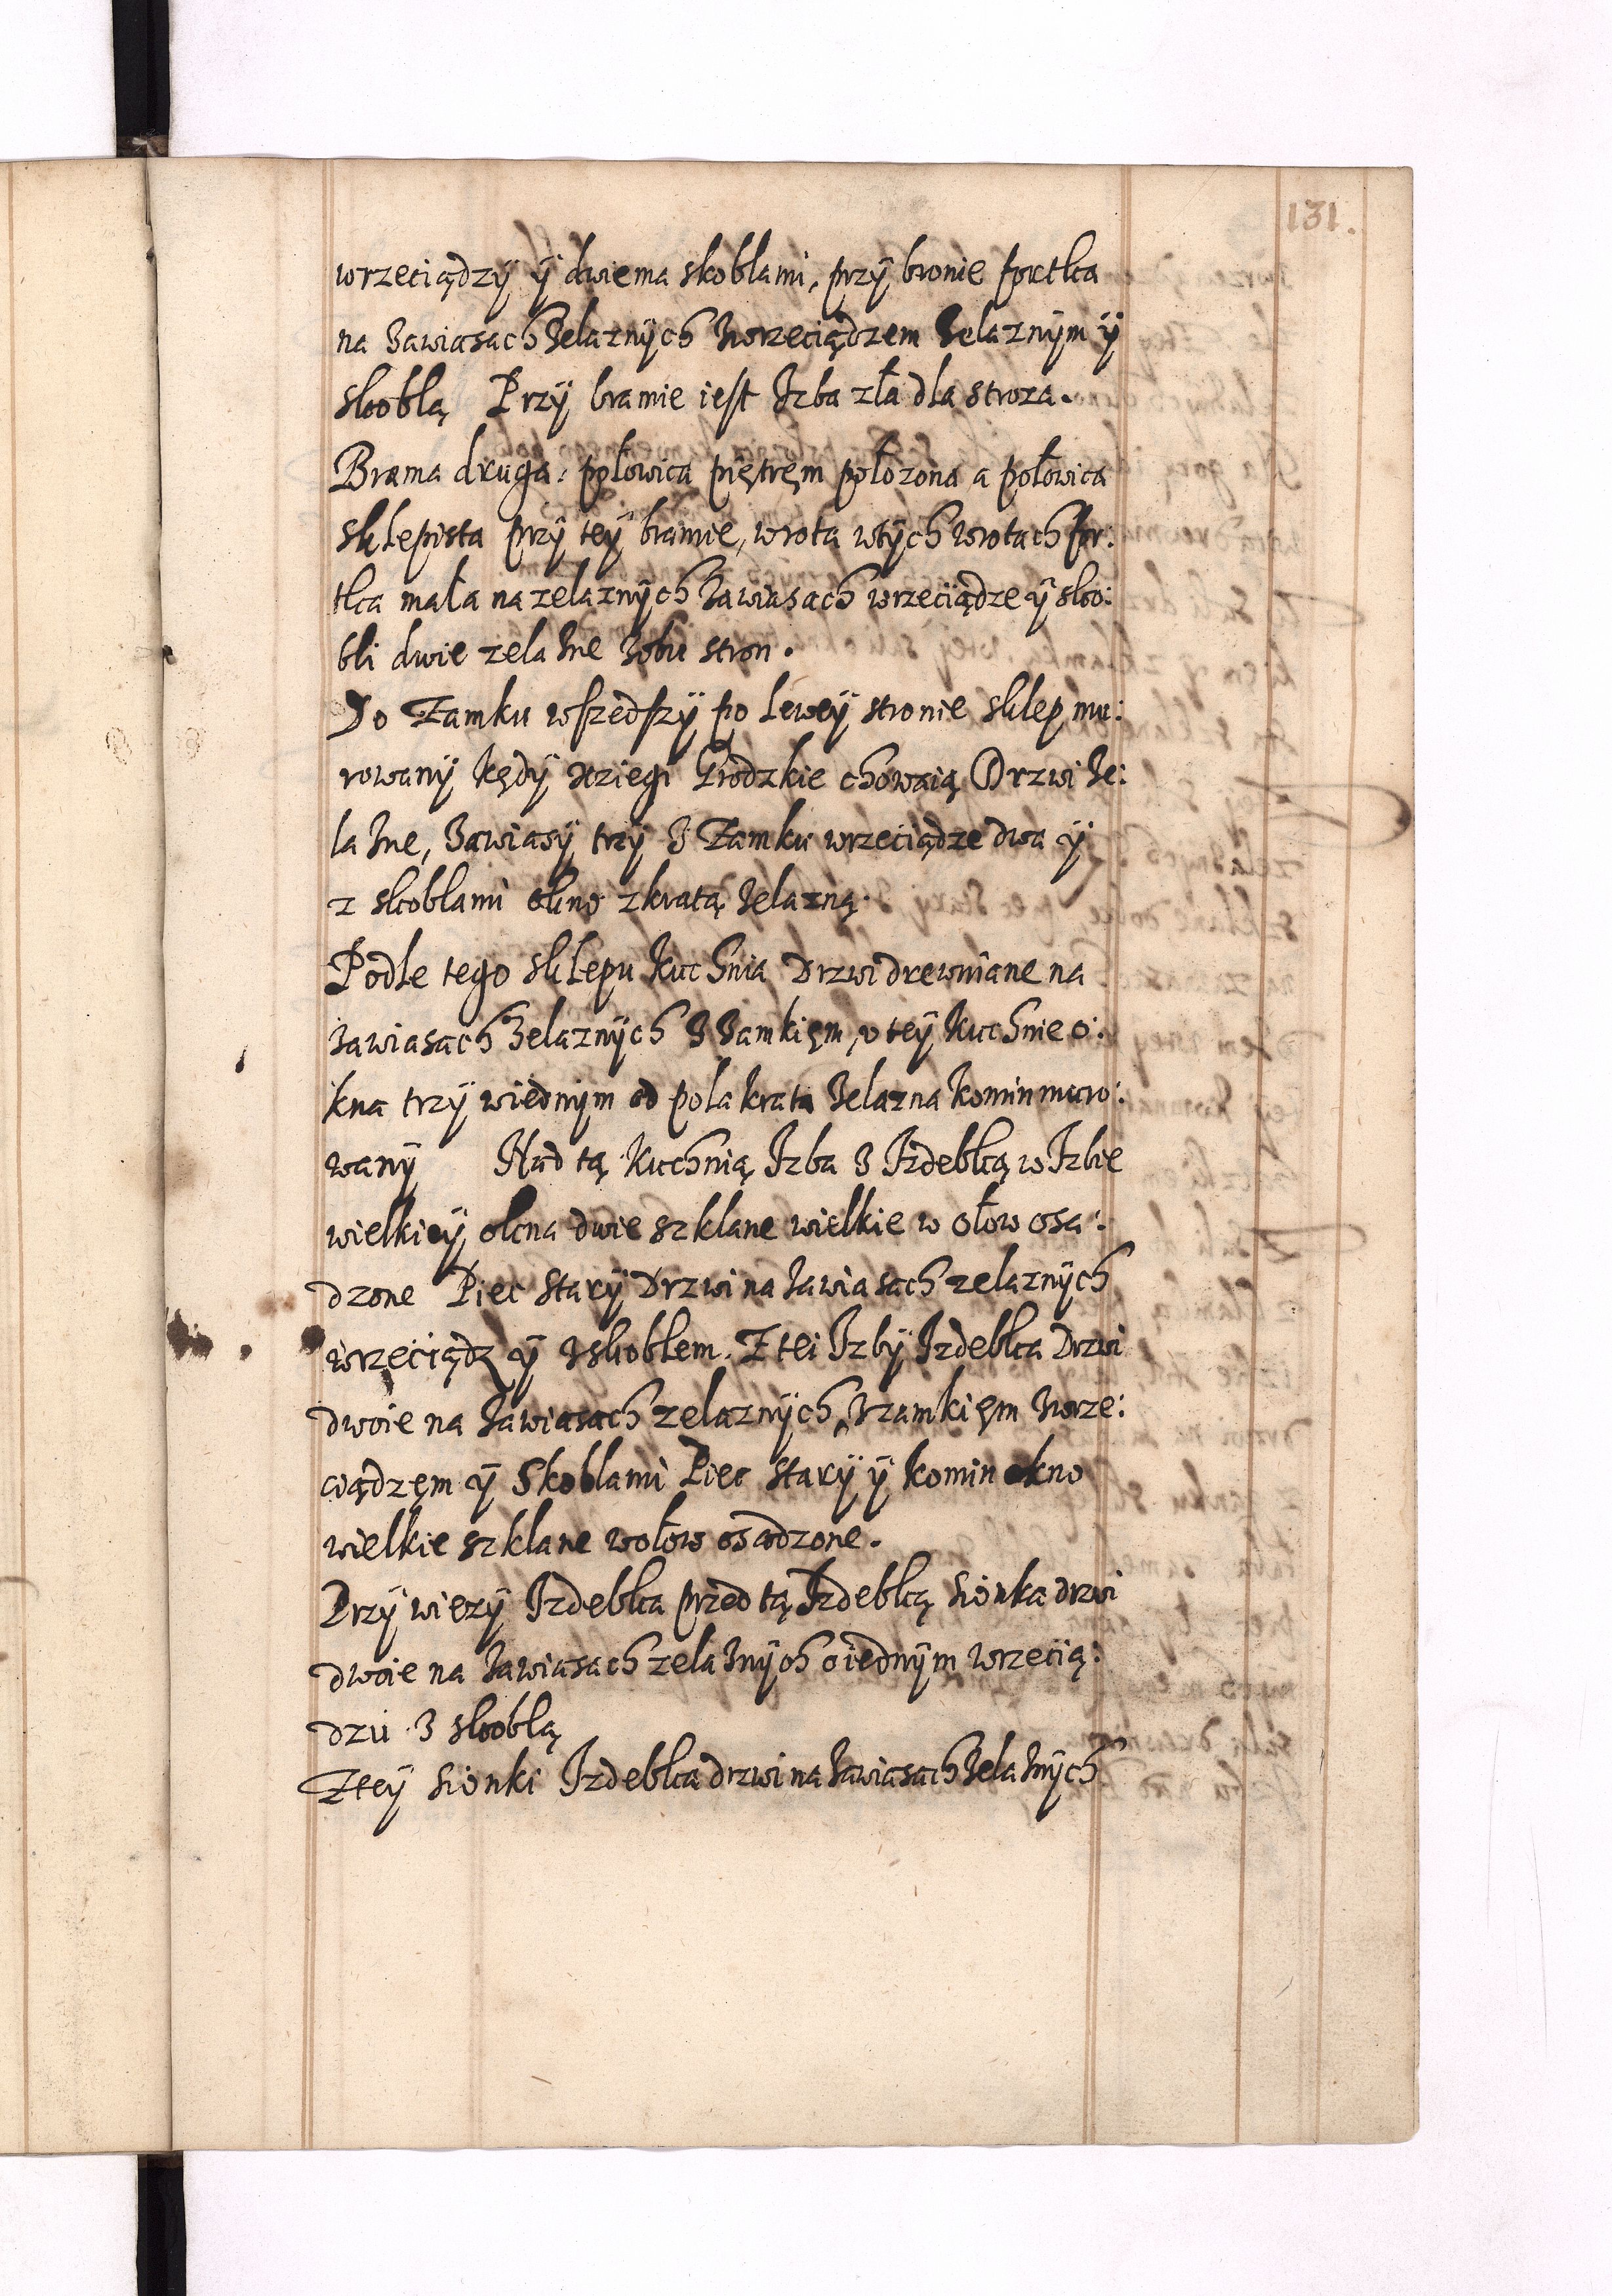 131.
wrzeciądzÿ ÿ dwiema skoblami, przÿ bronie fortka
na zawiasach żelaznÿch zwrzeciądzem żelaznÿm ÿ
skoblą Przÿ bramie iest Izba zła dla stroza.
Brama druga, połowica piętręm położona a połowica
sklepista przÿ teÿ bramie, wrota wtÿch wrotach for:
tka mała na zelaznÿch zawiasach wrzeciądze ÿ sko:
bli dwie zelazne zobu stron.
Do Zamku wszedszÿ po leweÿ stronie sklep mu:
rowanÿ kędÿ xziegi Grodzkie chowaią Drzwi że:
lazne, zawiasÿ trzÿ z Zamku wrzeciądze dwa ÿ
z skoblami okno zkratą żelazną.
Podle tego sklepu kuchnia Drzwi drewniane na
zawiasach żelaznÿch z zamkięm, v teÿ kuchnie o:
kna trzÿ wiednÿm od pola krata żelazna komin muro:
wanÿ Nad tą kuchnią Izba z Izdebką w Izbie
wielkieÿ okna dwie szklane wielkie w ołow osa:
dzone Piec starÿ Drzwi na zawiasach zelaznÿch
wrzeciądz ÿ zskoblem. Z tei Izbÿ Izdebka Drzwi
dwoie na zawiasach zelaznÿch, zzamkięm zwrze:
ciądzęm ÿ skoblami Piec starÿ ÿ komin okno
wielkie szklane wołow osadzone.
Przÿ wiezÿ Izdebka przed tą Izdebką sionka drzwi
dwoie na zawiasach zelaznÿch oiednÿm wrzecią:
dzu z skoblą
Zteÿ sionki Izdebka drzwi na zawiasach żelaznÿch